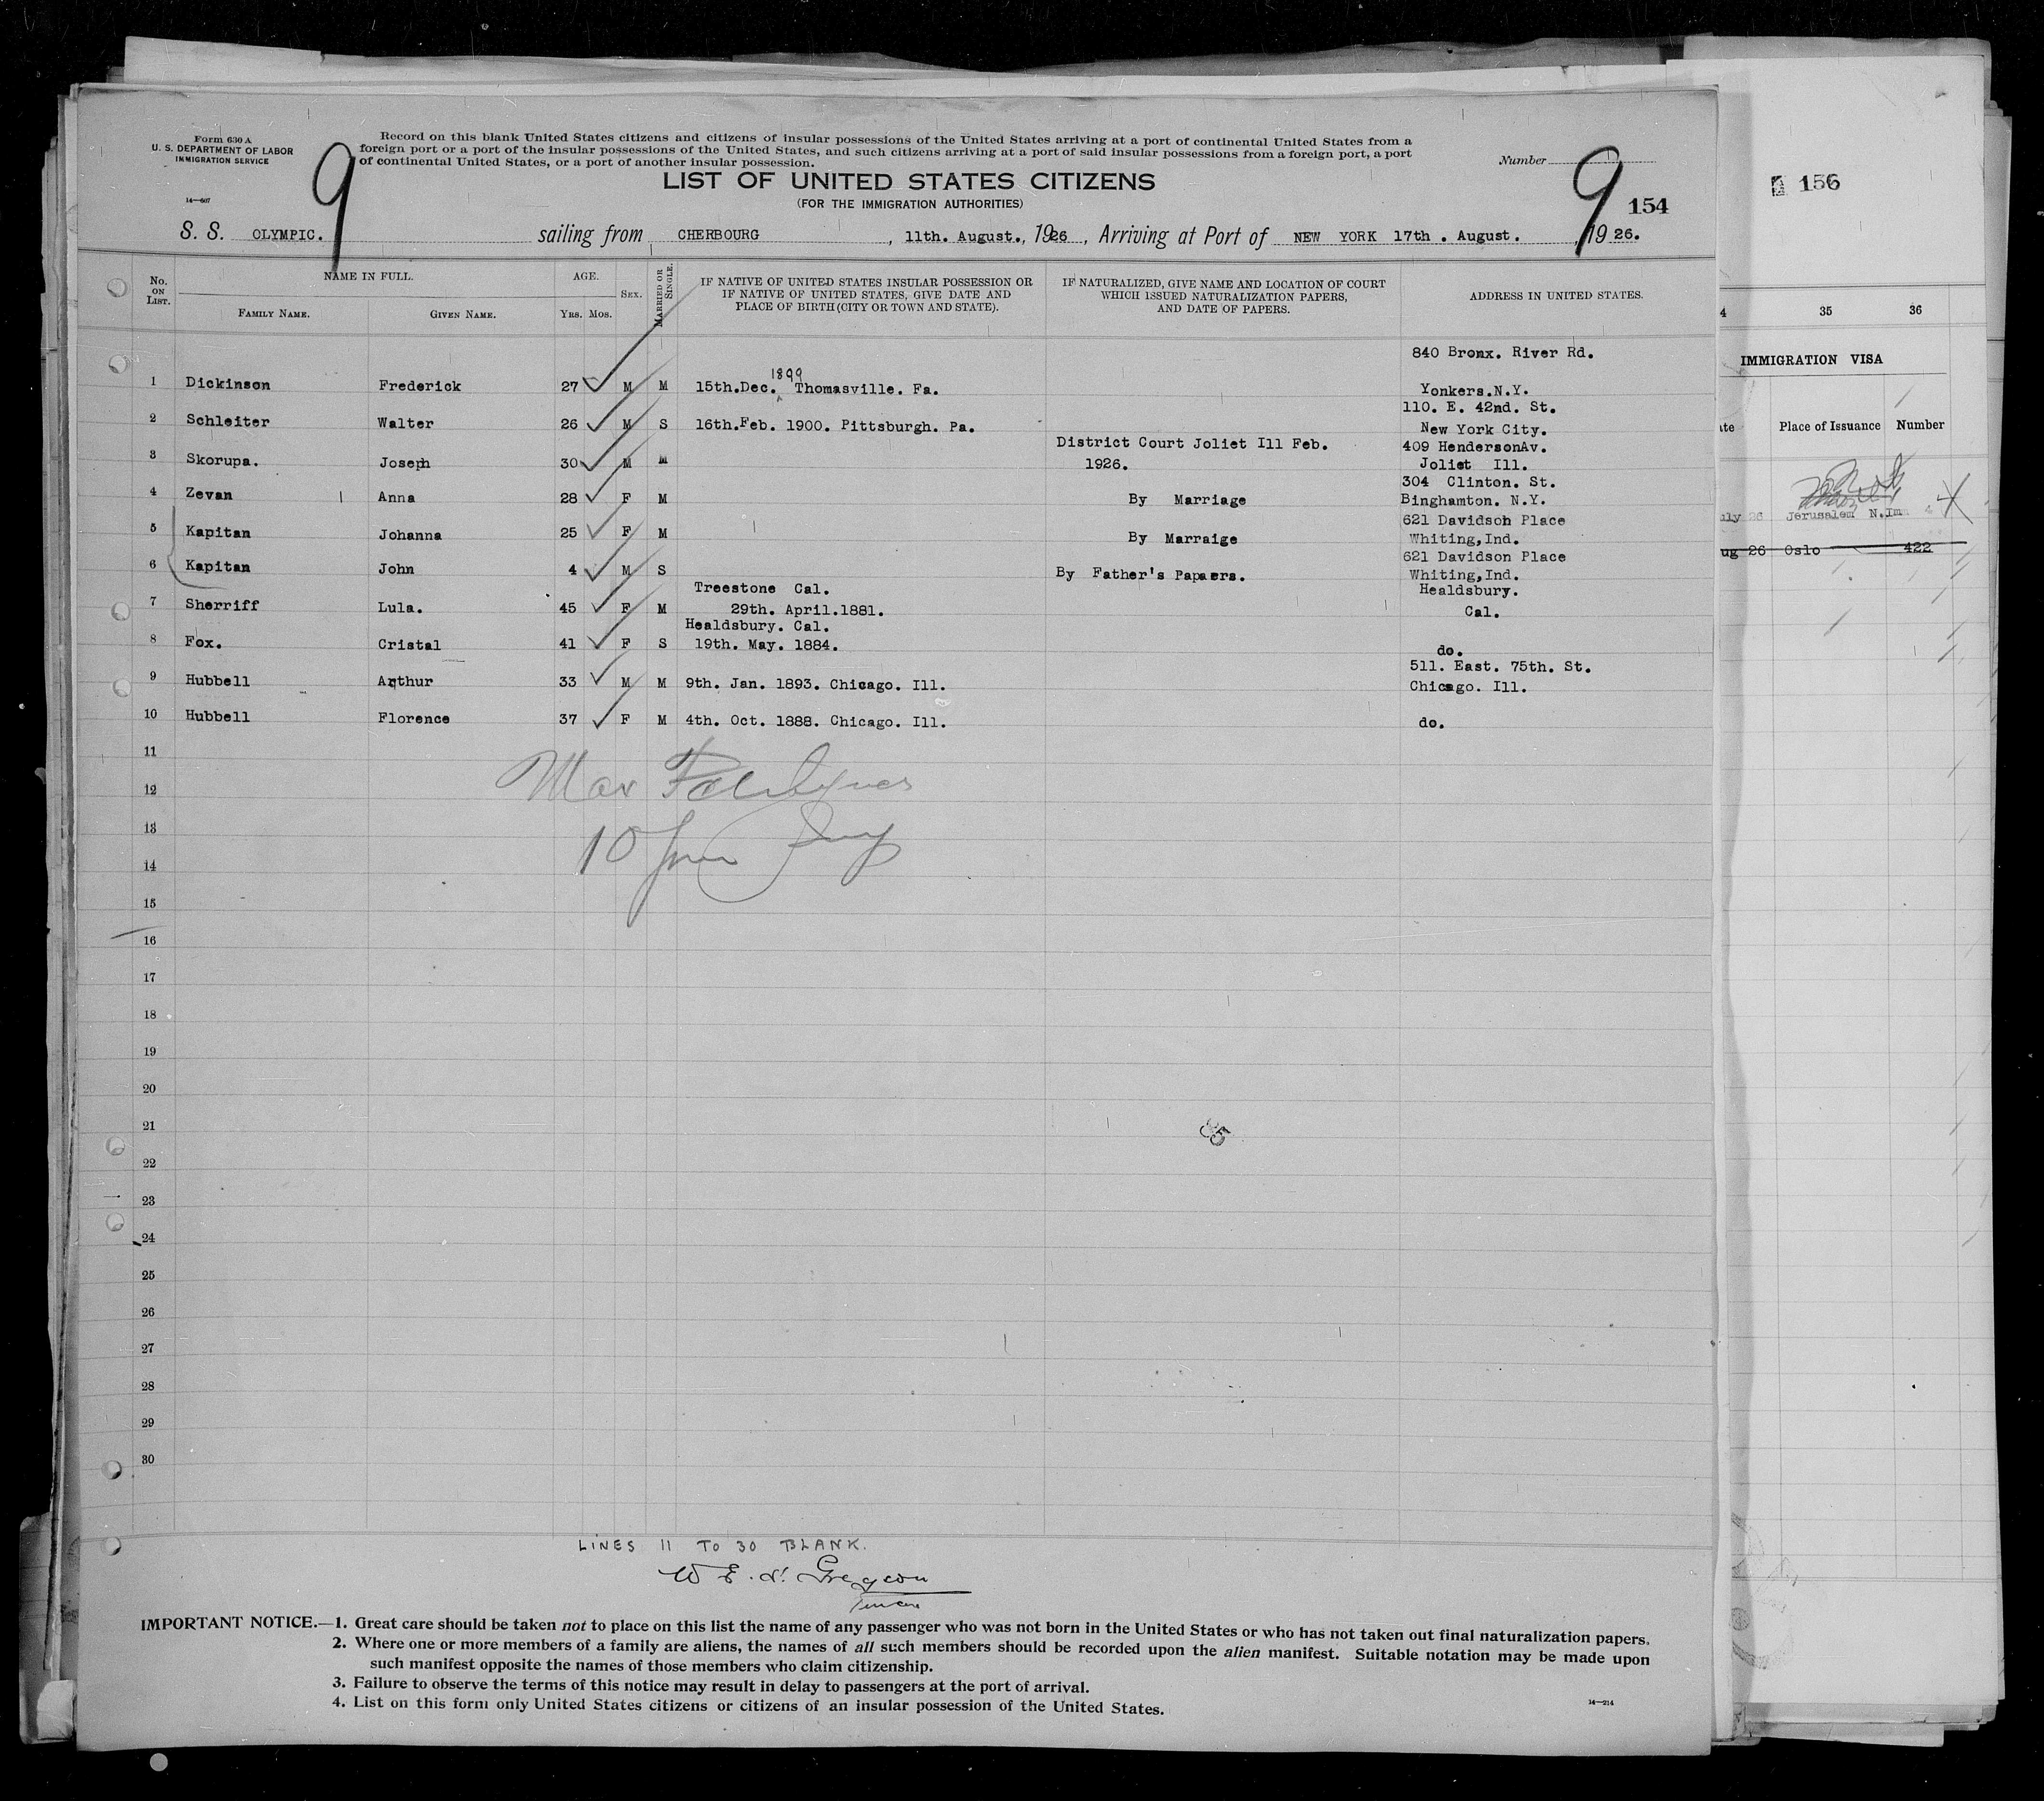 Form 630 A
U. S. DEPARTMENT OF LABOR
IMMIGRATION SERVICE
14—667
9
Record on this blank United States citizens and citizens of insular possessions of the United States arriving at a port of continental United States from a
foreign port or a port of the insular possessions of the United States, and such citizens arriving at a port of said insular possessions from a foreign port, a port
of continental United States, or a port of another insular possession.
Number
9
154
LIST OF UNITED STATES CITIZENS
(FOR THE IMMIGRATION AUTHORITIES)
S. S. OLYMPIC. sailing from CHERBOURG, 11th. August., 1926, Arriving at Port of NEW YORK 17th . August. , 1926.
No. ON LIST. NAME IN FULL. FAMILY NAME. GIVEN NAME. AGE. YRS. MOS. SEX. MARRIED OR SINGLE.
IF NATIVE OF UNITED STATES INSULAR POSSESSION OR
IF NATIVE OF UNITED STATES, GIVE DATE AND
PLACE OF BIRTH (CITY OR TOWN AND STATE).
IF NATURALIZED, GIVE NAME AND LOCATION OF COURT
WHICH ISSUED NATURALIZATION PAPERS,
AND DATE OF PAPERS.
ADDRESS IN UNITED STATES.
840 Bronx. River Rd.
1 Dickinson Frederick 27 M M 15th.Dec. 1899 Thomasville. Fa. Yonkers.N.Y.
110. E. 42nd. St.
2 Schleiter Walter 26 M S 16th.Feb. 1900. Pittsburgh. Pa. New York City.
District Court Joliet Ill Feb. 409 HendersonAv.
3 Skorupa. Joseph 30 M M 1926. Joliet Ill.
304 Clinton. St.
4 Zevan Anna 28 F M By Marriage Binghamton. N.Y.
621 Davidson Place
5 Kapitan Johanna 25 F M By Marraige Whiting,Ind.
621 Davidson Place
6 Kapitan John 4 M S By Father's Papaers. Whiting,Ind.
Treestone Cal. Healdsbury.
7 Sherriff Lula. 45 F M 29th. April.1881. Cal.
Healdsbury. Cal.
8 Fox. Cristal 41 F S 19th. May. 1884. do.
511. East. 75th. St.
9 Hubbell Arthur 33 M M 9th. Jan. 1893. Chicago. Ill. Chicago. Ill.
10 Hubbell Florence 37 F M 4th. Oct. 1888. Chicago. Ill. do.
11
12
13
14
15
16
17
18
19
20
21
22
23
24
25
26
27
28
29
30
LINES 11 TO 30 BLANK.
IMPORTANT NOTICE.—1. Great care should be taken not to place on this list the name of any passenger who was not born in the United States or who has not taken out final naturalization papers.
2. Where one or more members of a family are aliens, the names of all such members should be recorded upon the alien manifest. Suitable notation may be made upon
such manifest opposite the names of those members who claim citizenship.
3. Failure to observe the terms of this notice may result in delay to passengers at the port of arrival.
4. List on this form only United States citizens or citizens of an insular possession of the United States.
14—214
156
35 36
IMMIGRATION VISA
Place of Issuance Number
26 Jerusalem N.Imm
ug 26 Oslo 422